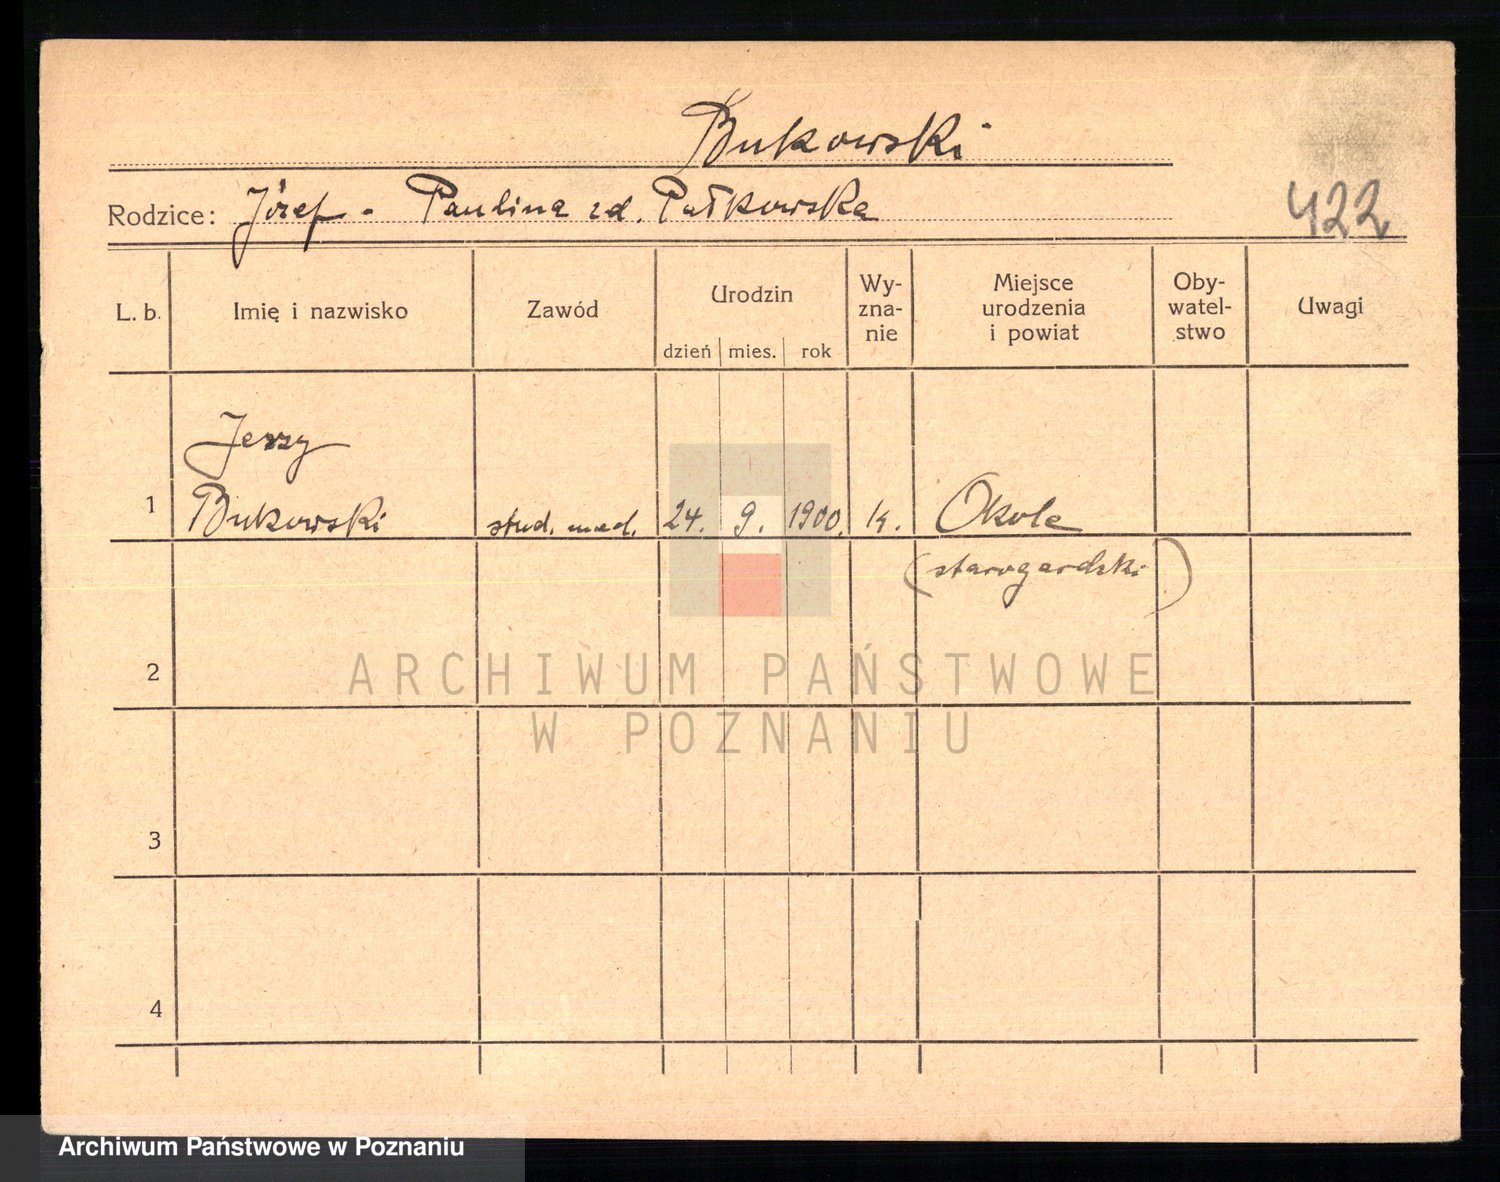 Bukowski
Rodzice: Józef - Paulina zd. Pałkowska
422
L. b. Imię i nazwisko Zawód Urodzin Wy- zna- nie Miejsce urodzenia i powiat Oby- watel- stwo Uwagi
dzień mies. rok
Jerzy
1 Bukowski stud. med. 24. 9. 1900. k. Okole
(starogardzki)
2
ARCHIWUM PAŃSTWOWE
W POZNANIU
3
4
Archiwum Państwowe w Poznaniu